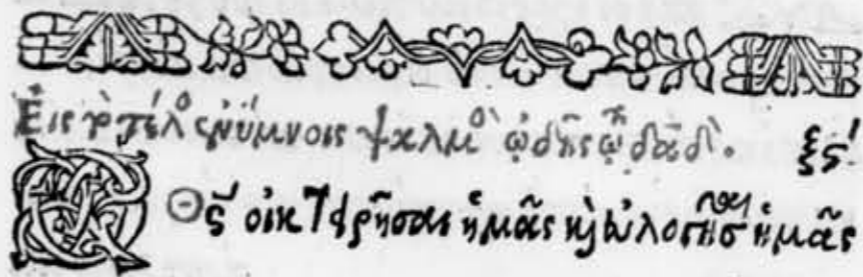 Εἰς τὸ τέλος ἐν ὕμνοις ψαλμὸς ᾠδῆς τῷ δᾱδ. ξϛʹ
Ὁ Θς̄ οἰκτειρῆσαι ἡμᾶς καὶ εὐλογῆσαι ἡμᾶς